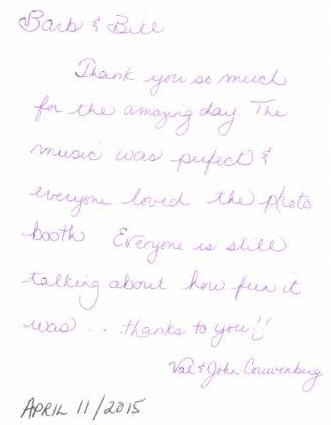 Barb & Bill
Thank you so much
for the amazing day. The
music was perfect &
everyone loved the photo
booth. Everyone is still
talking about how fun it
was... thanks to you!!
Val & John Couwenberg
APRIL 11/2015